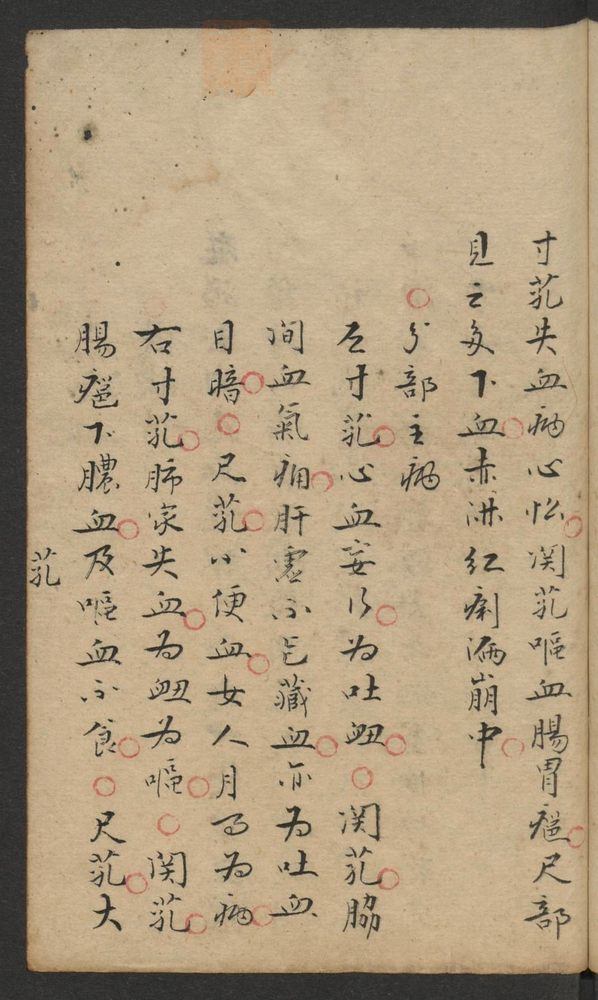 寸芤失血病心忪関芤嘔血腸胃癰尺部
見之多下血赤淋紅痢漏崩中
分部主病
左寸芤心血妄行为吐衂関芤脇
间血氣痛肝虚不能藏血亦为吐血
目暗尺芤小便血女人月事为病
右寸芤肺家失血为衂为嘔関芤
腸癰下膿血及嘔血不食尺芤大
芤